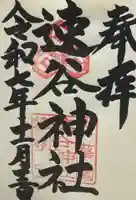 奉拝
速谷神社
令和七年十一月吉日